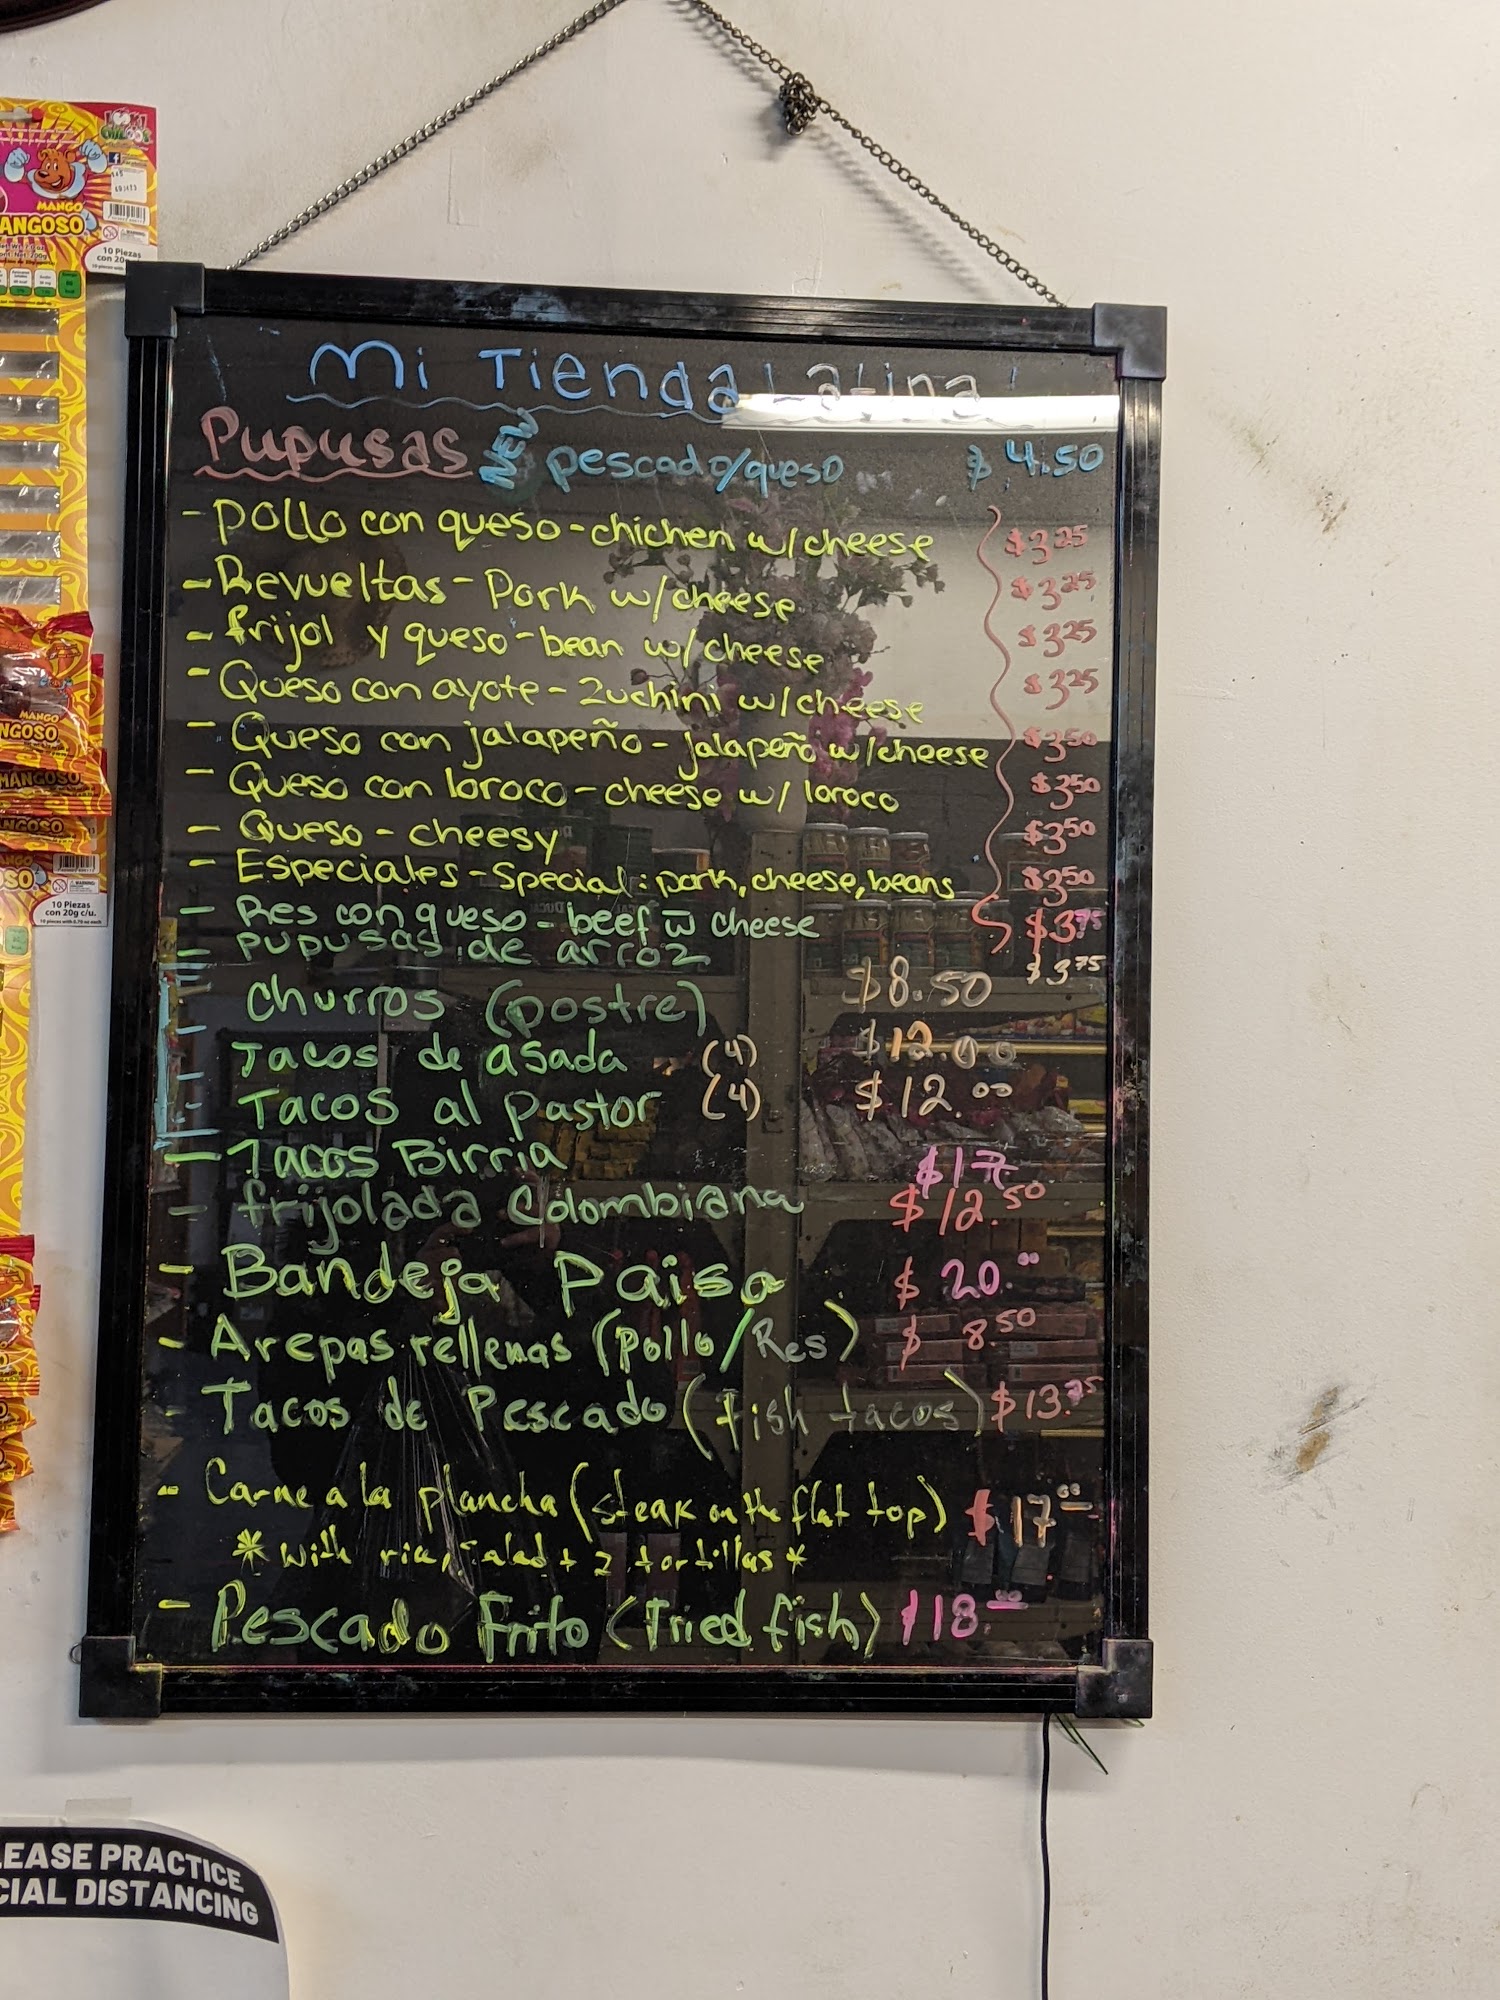 MANGO
ANGOSO
10 Piezas
con 20g
Mi Tienda Latina
Pupusas NEW pescado/queso $4.50
- Pollo con queso - chichen w/cheese $3.25
- Revueltas - Pork w/cheese $3.25
- frijol y queso - bean w/cheese $3.25
- Queso con ayote - Zuchini w/cheese $3.25
- Queso con jalapeño - jalapeño w/cheese $3.50
- Queso con loroco - cheese w/ loroco $3.50
- Queso - cheesy $3.50
- Especiales - Special: pork, cheese, beans $3.50
- Res con queso - beef w cheese $3.75
- pupusas de arroz $3.75
- Churros (postre) $8.50
- Tacos de asada (4) $12.00
- Tacos al Pastor (4) $12.00
- Tacos Birria $17
- frijolada Colombiana $12.50
- Bandeja Paisa $20.00
- Arepas rellenas (pollo/Res) $8.50
- Tacos de Pescado (fish tacos) $13.75
- Carne a la plancha (steak on the flat top) $17.00
* with rice, salad + 2 tortillas *
- Pescado Frito (Fried fish) $18.00
MANGO
NGOSO
MANGOSO
GOSO
10 Piezas
con 20g c/u.
LEASE PRACTICE
CIAL DISTANCING